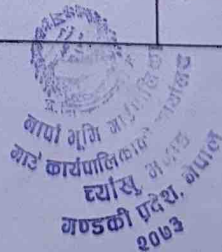 नार्पा भूमि गाउँपालिका
गाउँ कार्यपालिकाको कार्यालय
च्याँखु मनाङ
गण्डकी प्रदेश, नेपाल
२०७३